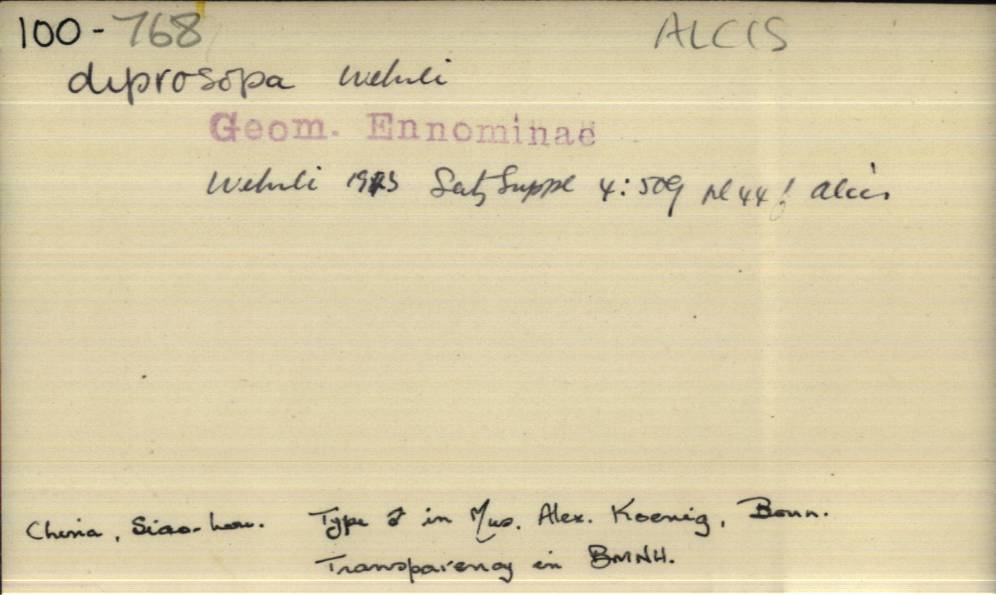 100-768 ALCIS
diprosopa Wehrli
Geom. Ennominae
Wehrli 1943 Seitz Suppl 4: 509 pl 44! Alcis
China, Siao-lou. Type ♂ in Mus. Alex. Koenig, Bonn.
Transparency in BMNH.